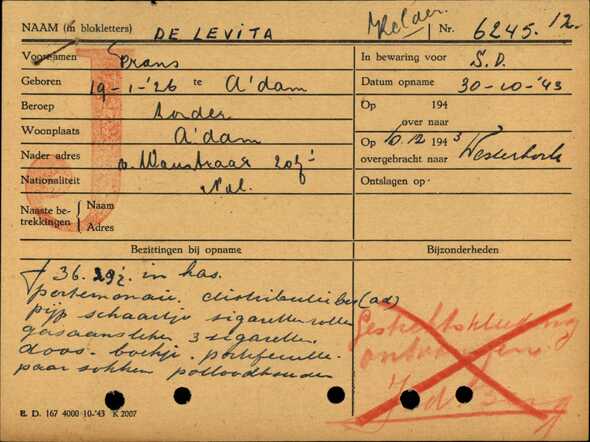 NAAM (in blokletters) DE LEVITA Helder. Nr. 6245.12.
Voornamen Frans In bewaring voor S.D.
Geboren 19-1-'26 te A'dam Datum opname 30-10-'43
Beroep zonder Op 194
over naar
Woonplaats A'dam Op 10.12 1943
Nader adres overgebracht naar Westerbork
Nationaliteit Ned. Ontslagen op
Naaste betrekkingen { Naam
Adres
J
Bezittingen bij opname Bijzonderheden
f 36.29½ in kas.
portemonaie. distributiebes(ad)
pijp schaartje sigaretteroller
gasaansteker 3 sigaretten
doos. boekje. portefeuille.
paar sokken potloodhouder
Gestichtskleeding
ontvangen.
E. D. 167 4000 10-'43 K 2007